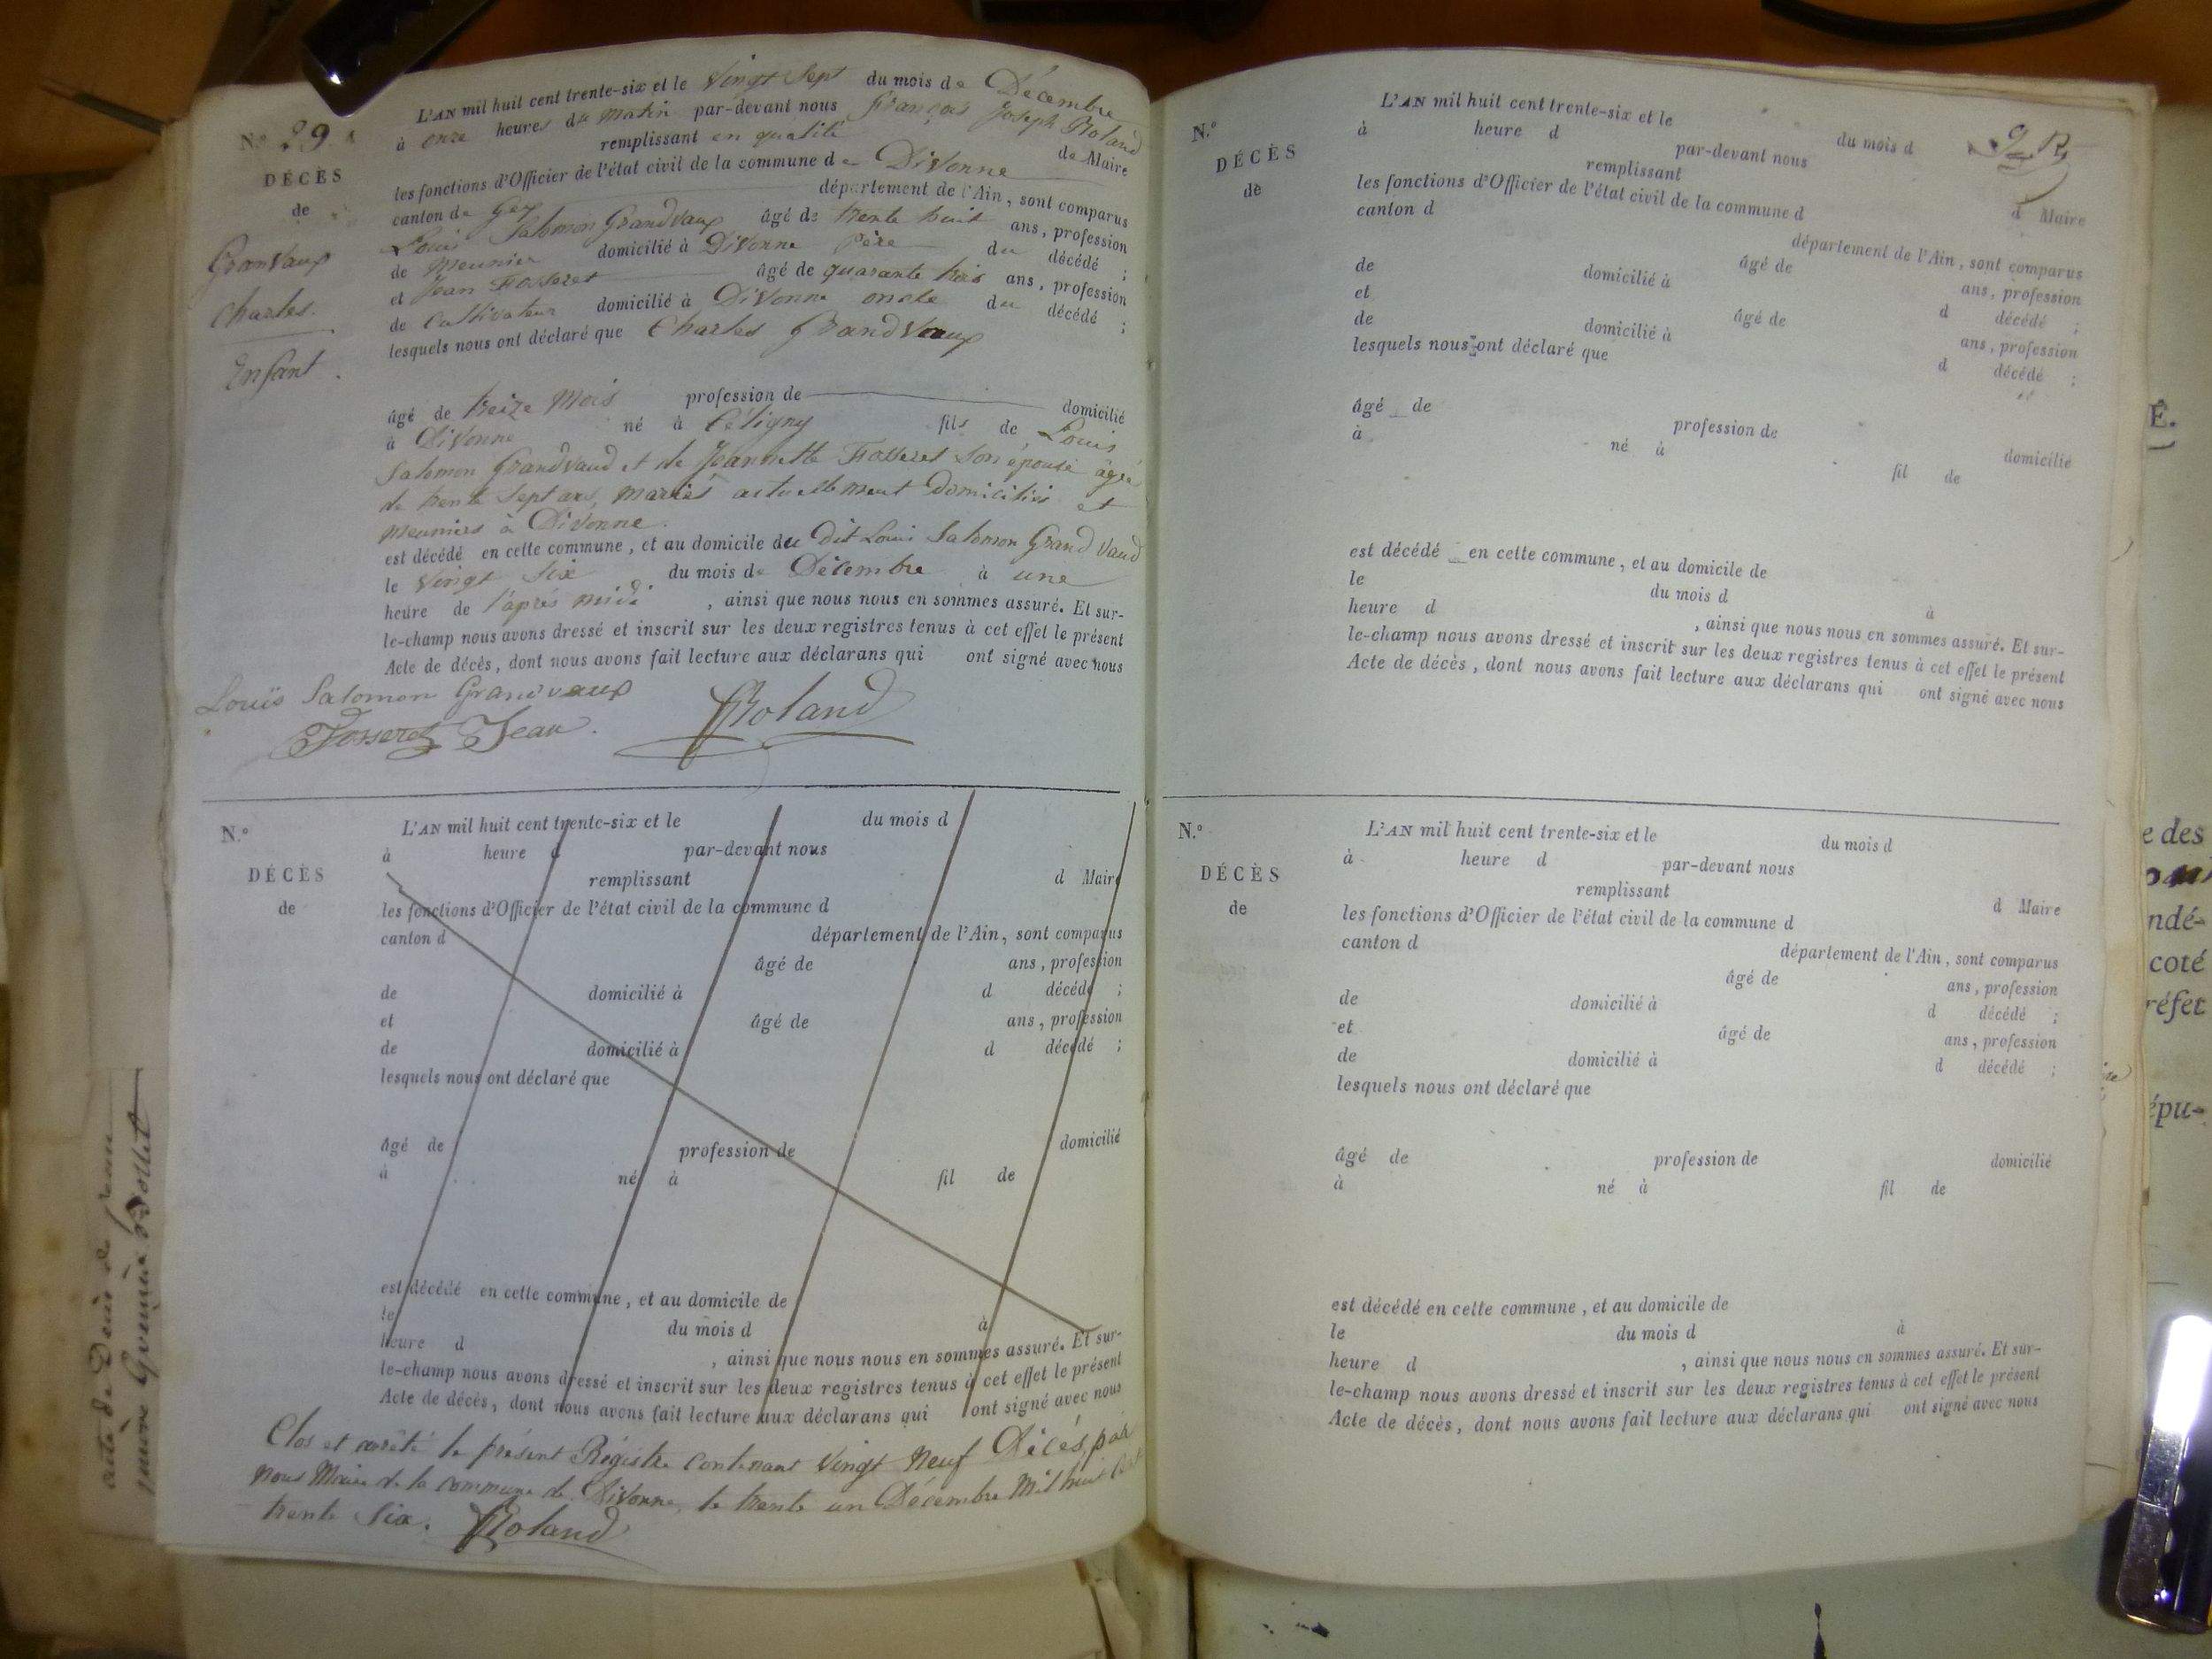 N.º 29
DÉCÈS
de
Granvaux
Charles.
Enfant.
L'AN mil huit cent trente-six et le Vingt Sept du mois de Décembre
à onze heures du Matin par-devant nous François Joseph Roland
remplissant en qualité de Maire
les fonctions d'Officier de l'état civil de la commune de Divonne
canton de Gex département de l'Ain, sont comparus
Louis Salomon Grandvaux âgé de trente huit ans, profession
de Meunier domicilié à Divonne Père du décédé ;
et Jean Fosseret âgé de quarante trois ans, profession
de Cultivateur domicilié à Divonne oncle du décédé ;
lesquels nous ont déclaré que Charles Grandvaux
âgé de treize Mois profession de domicilié
à Divonne né à Céligny fils de Louis
Salomon Grandvaud et de Jeannette Fosseret son épouse âgée
de trente Sept ans, mariés actuellement domiciliés et
meuniers à Divonne.
est décédé en cette commune, et au domicile du dit Louis Salomon Grand Vaud
le Vingt Six du mois de Décembre à une
heure de l'après midi , ainsi que nous nous en sommes assuré. Et sur-
le-champ nous avons dressé et inscrit sur les deux registres tenus à cet effet le présent
Acte de décès, dont nous avons fait lecture aux déclarans qui ont signé avec nous
Louis Salomon Grandvaux
Fosseret Jean. Roland
N.º
DÉCÈS
de
L'AN mil huit cent trente-six et le du mois d
à heure d par-devant nous
remplissant d Maire
les fonctions d'Officier de l'état civil de la commune d
canton d département de l'Ain, sont comparus
âgé de ans, profession
de domicilié à d décédé ;
et âgé de ans, profession
de domicilié à d décédé ;
lesquels nous ont déclaré que
âgé de profession de domicilié
à né à fil de
est décédé en cette commune, et au domicile de
le du mois d à
heure d , ainsi que nous nous en sommes assuré. Et sur-
le-champ nous avons dressé et inscrit sur les deux registres tenus à cet effet le présent
Acte de décès, dont nous avons fait lecture aux déclarans qui ont signé avec nous
Clos et arrêté le présent Régistre contenant Vingt Neuf Décès, par
nous Maire de la commune de Divonne, le trente un Décembre Mil huit Cent
trente Six. Roland
N.º
DÉCÈS
de
L'AN mil huit cent trente-six et le du mois d
à heure d par-devant nous
remplissant d Maire
les fonctions d'Officier de l'état civil de la commune d
canton d département de l'Ain, sont comparus
âgé de ans, profession
de domicilié à d décédé ;
et âgé de ans, profession
de domicilié à d décédé ;
lesquels nous ont déclaré que
âgé de profession de domicilié
à né à fil de
est décédé en cette commune, et au domicile de
le du mois d à
heure d , ainsi que nous nous en sommes assuré. Et sur-
le-champ nous avons dressé et inscrit sur les deux registres tenus à cet effet le présent
Acte de décès, dont nous avons fait lecture aux déclarans qui ont signé avec nous
N.º
DÉCÈS
de
L'AN mil huit cent trente-six et le du mois d
à heure d par-devant nous
remplissant d Maire
les fonctions d'Officier de l'état civil de la commune d
canton d département de l'Ain, sont comparus
âgé de ans, profession
de domicilié à d décédé ;
et âgé de ans, profession
de domicilié à d décédé ;
lesquels nous ont déclaré que
âgé de profession de domicilié
à né à fil de
est décédé en cette commune, et au domicile de
le du mois d à
heure d , ainsi que nous nous en sommes assuré. Et sur-
le-champ nous avons dressé et inscrit sur les deux registres tenus à cet effet le présent
Acte de décès, dont nous avons fait lecture aux déclarans qui ont signé avec nous
É.
e des
ndé-
coté
réfet
épu-